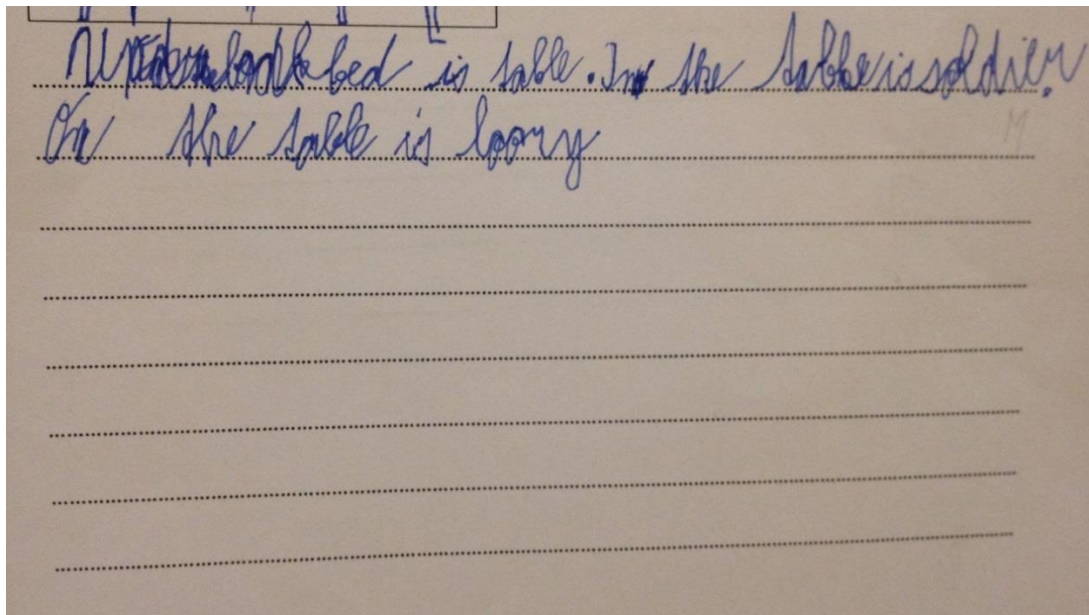 bed is table. In the table is soldier.
On the table is loory